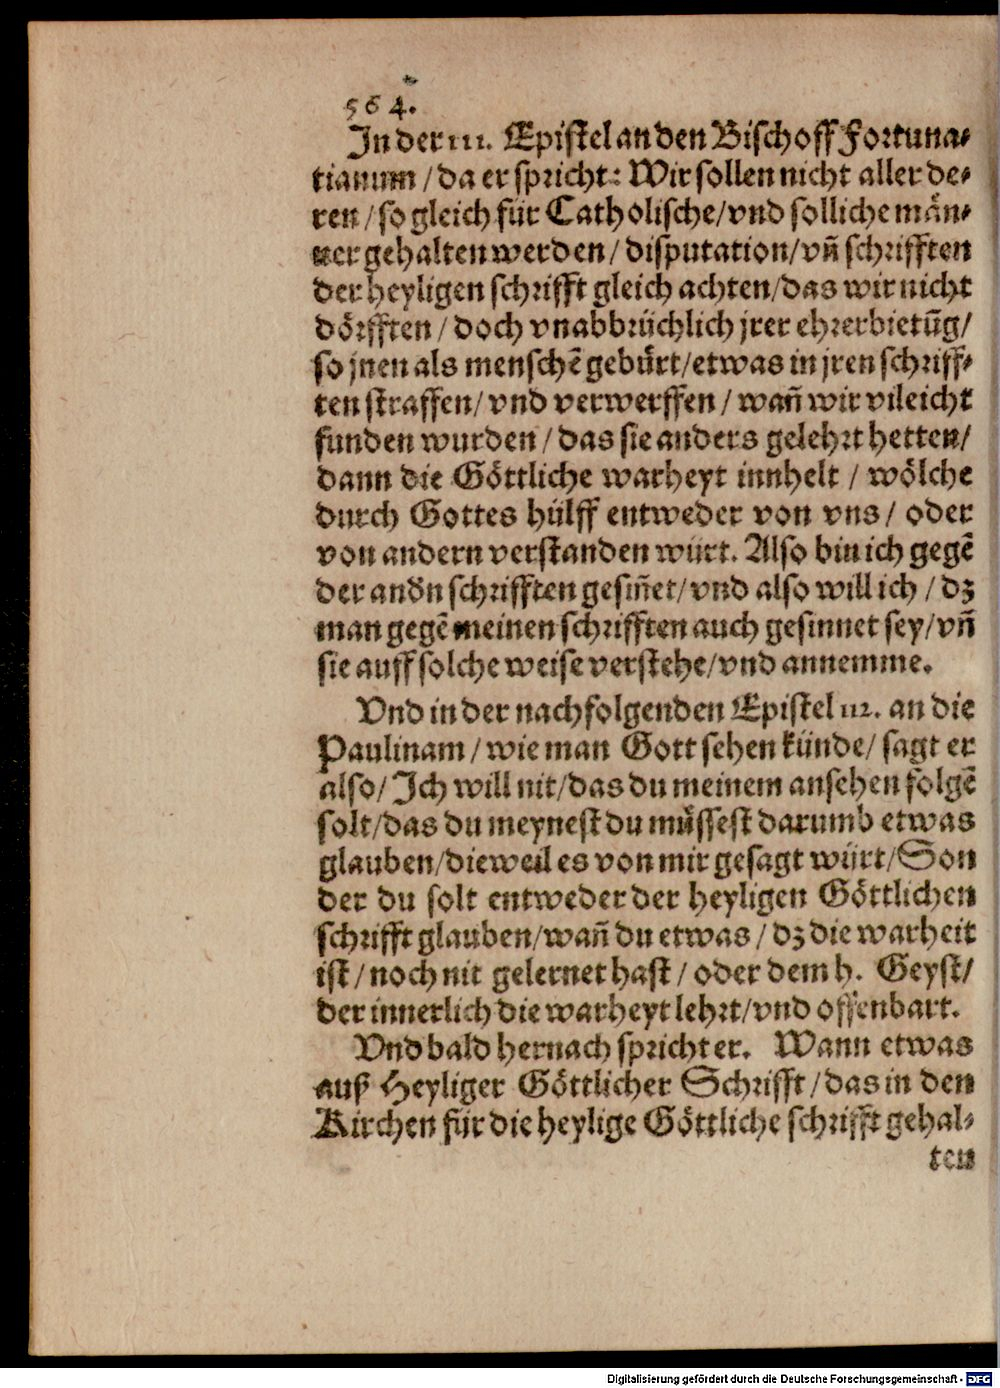 564.
In der 111. Epistel an den Bischoff Fortuna-
tianum / da er spricht: Wir sollen nicht aller de-
ren / so gleich für Catholische / vnd solliche män-
ner gehalten werden / disputation / vn̄ schrifften
der heyligen schrifft gleich achten / das wir nicht
dörfften / doch vnabbrüchlich jrer ehrerbietūg /
so jnen als menschē gebürt / etwas in jren schriff-
ten straffen / vnd verwerffen / wan̄ wir vileicht
funden wurden / das sie anders gelehrt hetten /
dann die Göttliche warheyt innhelt / wölche
durch Gottes hülff entweder von vns / oder
von andern verstanden würt. Also bin ich gegē
der andn schrifften gesin̄et / vnd also will ich / dz
man gegē meinen schrifften auch gesinnet sey / vn̄
sie auff solche weise verstehe / vnd annemme.
Vnd in der nachfolgenden Epistel 112. an die
Paulinam / wie man Gott sehen künde / sagt er
also / Ich will nit / das du meinem ansehen folgē
solt / das du meynest du müssest darumb etwas
glauben / dieweil es von mir gesagt würt / Son
der du solt entweder der heyligen Göttlichen
schrifft glauben / wan̄ du etwas / dz die warheit
ist / noch nit gelernet hast / oder dem h. Geyst /
der innerlich die warheyt lehrt / vnd offenbart.
Vnd bald hernach spricht er. Wann etwas
auß Heyliger Göttlicher Schrifft / das in den
Kirchen für die heylige Göttliche schrifft gehal-
ten
Digitalisierung gefördert durch die Deutsche Forschungsgemeinschaft - DFG